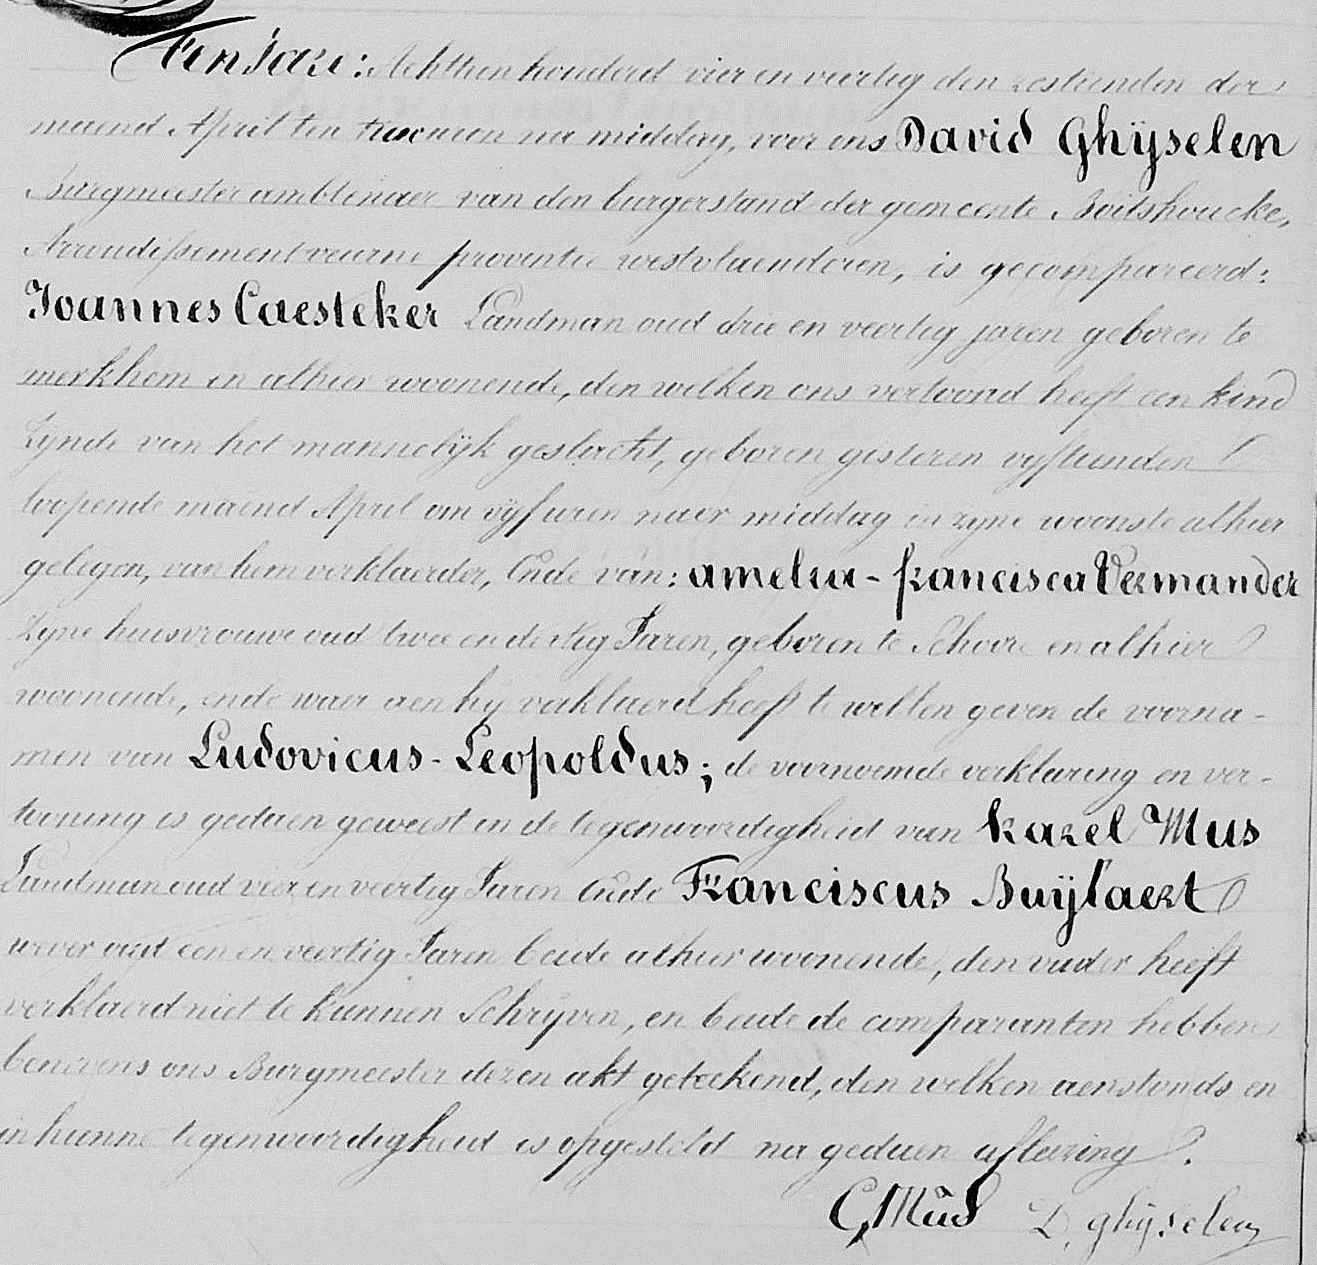 Ten Jare: Achttien honderd vier en veertig den zestienden der
maend April ten twee uren na middag, voor ons David Ghÿselen
Burgmeester ambtenaer van den burgerstand der gemeente Boitshoucke,
Arrondissement veurne provintie westvlaenderen, is gecompareerd:
Joannes Caesteker Landman oud drie en veertig jaren geboren te
merkhem en alhier woonende, den welken ons vertoond heeft een kind
Zynde van het mannelÿk geslacht, geboren gisteren vyftienden
loopende maend April om vÿf uren naer middag in zyne woonste alhier
gelegen, van hem verklaerder, Ende van: amelia-francisca Vermander
Zyne huisvrouwe oud twee en dertig Jaren, geboren te Schoore en alhier
woonende, ende waer aen hÿ verklaerd heeft te willen geven de voorna-
men van Ludovicus-Leopoldus; de voornoemde verklaring en ver-
tooning is gedaen geweest in de tegenwoordigheid van Karel Mus
Landman oud vier en veertig Jaren Ende Franciscus Buÿlaert
wever oud een en veertig Jaren beide alhier woonende, den vader heeft
verklaerd niet te kunnen Schrÿven, en beide de comparanten hebben
benevens ons Burgmeester dezen akt geteekend, den welken aenstonds en
in hunne tegenwoordigheid is opgesteld na gedaen aflezing.
C, Mus D, ghÿselen